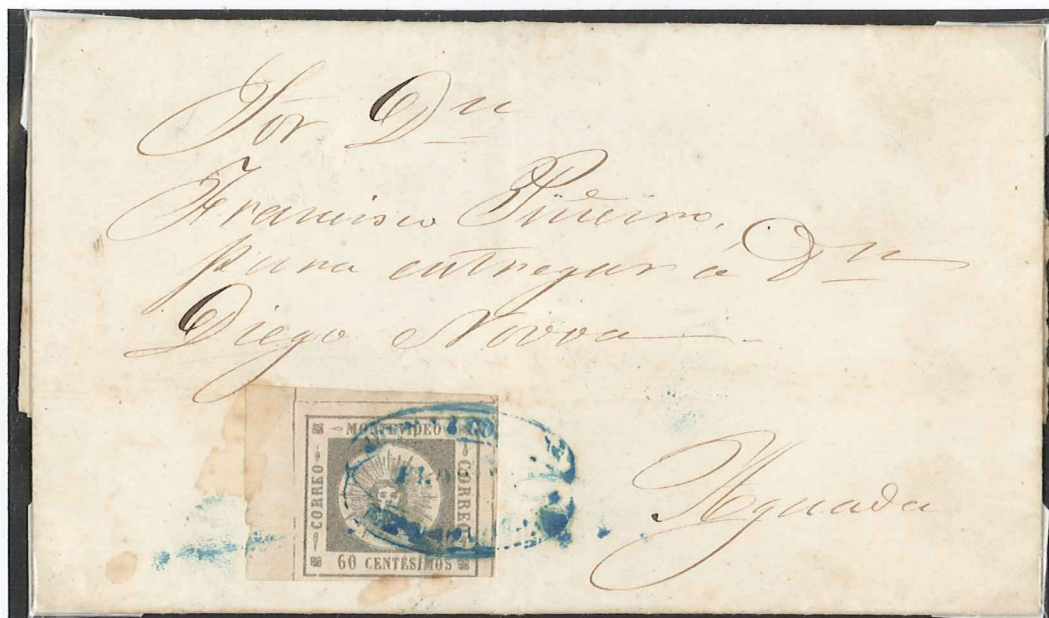 Por Dn
Francisco Piñeiro,
para entregar á Dn
Diego Novoa
MONTEVIDEO
CORREO
CORREO
60 CENTÉSIMOS
Aguada